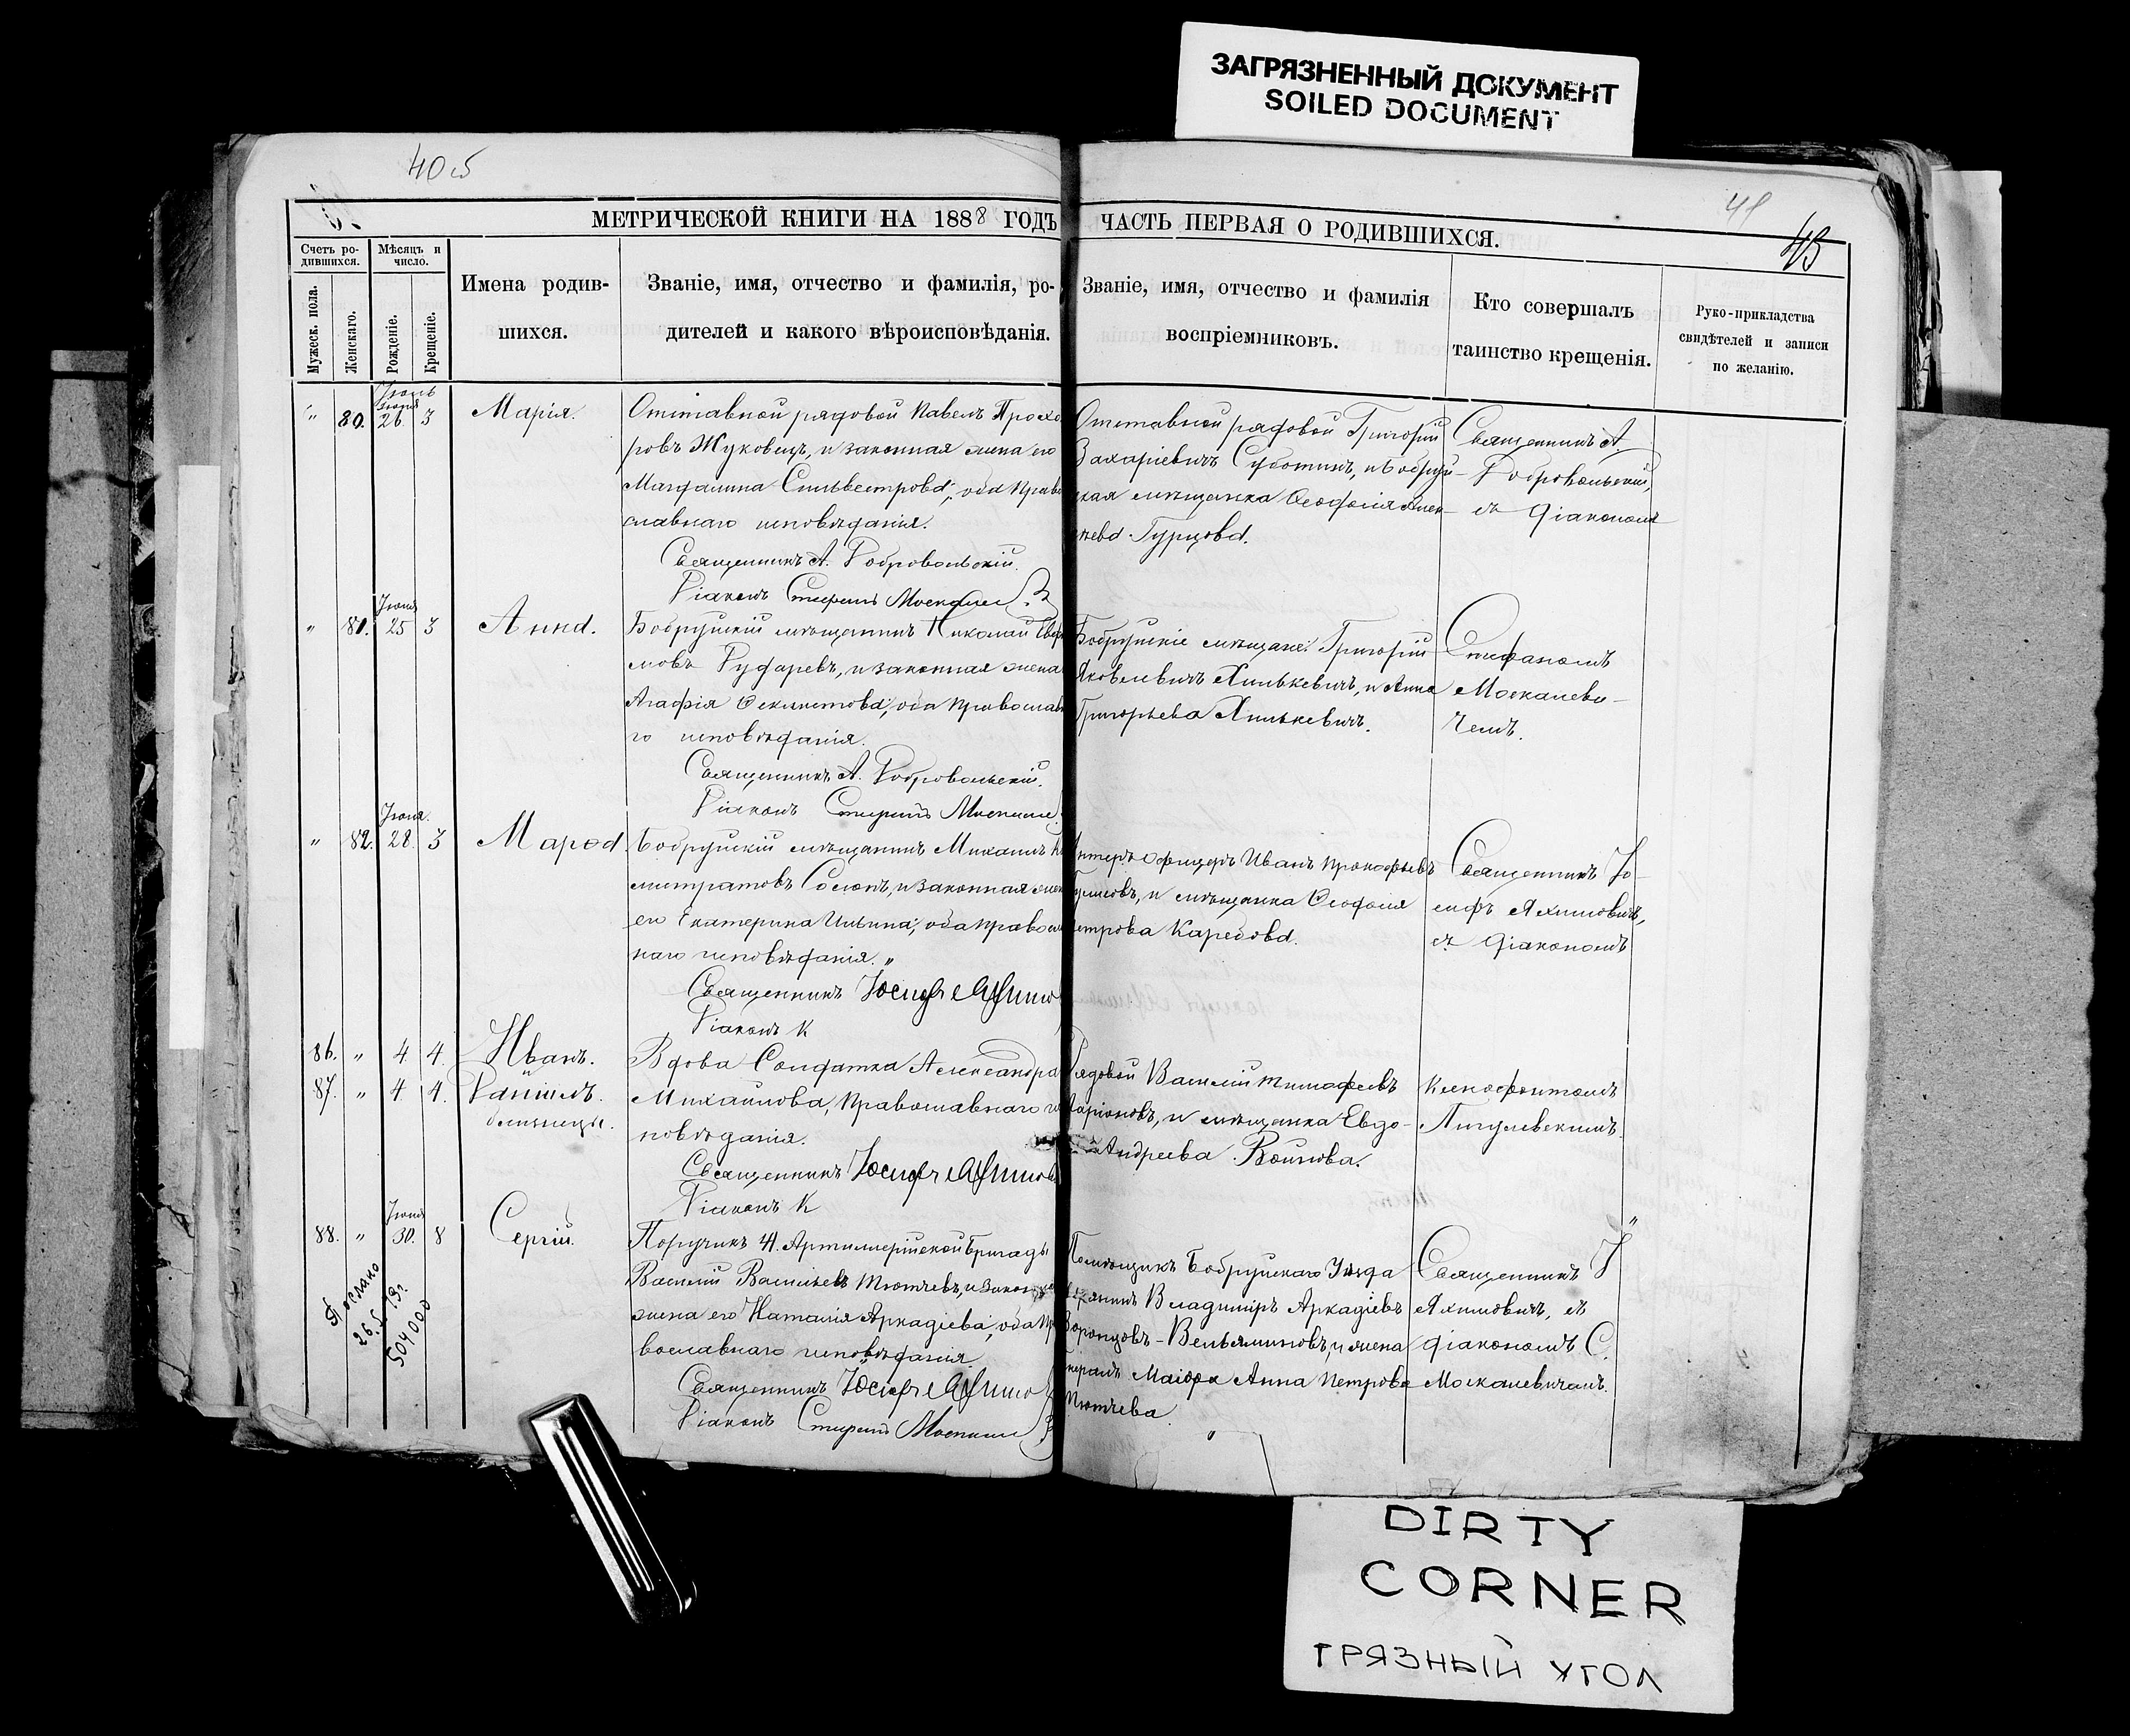 ЗАГРЯЗНЕННЫЙ ДОКУМЕНТ
SOILED DOCUMENT
40
41
43
МЕТРИЧЕСКОЙ КНИГИ НА 1888 ГОДЪ
Счетъ ро-
дившихся.
Мѣсяцъ и
число.
Мужеск. пола.
Женскаго.
Рожденіе.
Крещеніе.
Имена родив-
шихся.
Званіе, имя, отчество и фамилія, ро-
дителей и какого вѣроисповѣданія.
ЧАСТЬ ПЕРВАЯ О РОДИВШИХСЯ.
Званіе, имя, отчество и фамилія
воспріемниковъ.
Кто совершалъ
таинство крещенія.
Руко-прикладства
свидѣтелей и записи
по желанію.
Іюль
Іюня
" 80. 26. 3 Марія.
Отставной рядовой Павелъ Прохо
ровъ Жуковецъ, и законная жена его
Магдалина Сильвестрова, оба право
славнаго исповѣданія.
Священникъ А. Добровольскій.
Діаконъ Стефанъ
Отставной рядовой Григорій
Захаріевичъ Суботинъ, и Бобруй-
ская мѣщанка Ѳеодосія
Гурцова.
Священникъ А.
Добровольскій,
съ діакономъ
Іюня
" 81. 25 3 Анна.
Бобруйскій мѣщанинъ Николай
мовъ Дударевъ, и законная жена
Агафія Ѳеклистова, оба православна
го исповѣданія.
Священникъ А. Добровольскій.
Діаконъ Стефанъ
Бобруйскіе мѣщане: Григорій
Яковлевичъ Хилькевичъ, и Анна
Григорьева Хилькевичъ.
Стефаномъ
Москалеви-
чемъ.
Іюня.
" 82. 28. 3 Мароа
Бобруйскій мѣщанинъ Михаилъ
Солонъ, и законная жен
его Екатерина Ильина, оба правосла
наго исповѣданія. "
Священникъ Іосифъ
Діаконъ К
Унтеръ офицеръ Иванъ Прокофьевъ
и мѣщанка Ѳеодосія
Петрова Каребова.
Священникъ Іо-
сифъ Яхимовичъ,
съ діакономъ
86. " 4 4. Иванъ.
87. " 4. 4. Даніилъ.
близнецы.
Вдова Солдатка Александра
Михайлова, православнаго ис
повѣданія.
Священникъ Іосифъ
Діаконъ К
Рядовой Василій Тимофеевъ
Ларіоновъ, и мѣщанка Евдо-
Андреева Войнова.
Ксенофонтомъ
Пигулевскимъ.
Іюня
88. " 30. 8 Сергій.
Поручикъ 4. Артиллерійской Бригады
Василій Васильевъ Тютчевъ, и законная
жена его Наталія Аркадіева, оба пра
вославнаго исповѣданія.
Священникъ Іосифъ
Діаконъ Стефанъ
Помѣщикъ Бобруйскаго Уѣзда
Дворянинъ Владиміръ Аркадіевъ
Воронцовъ-Вельяминовъ, и жена
Генералъ Маіора Анна Петрова
Тютчева
Священникъ І
Яхимовичъ, съ
діакономъ С.
Москалевичемъ.
Послано
DIRTY
CORNER
ГРЯЗНЫЙ УГОЛ